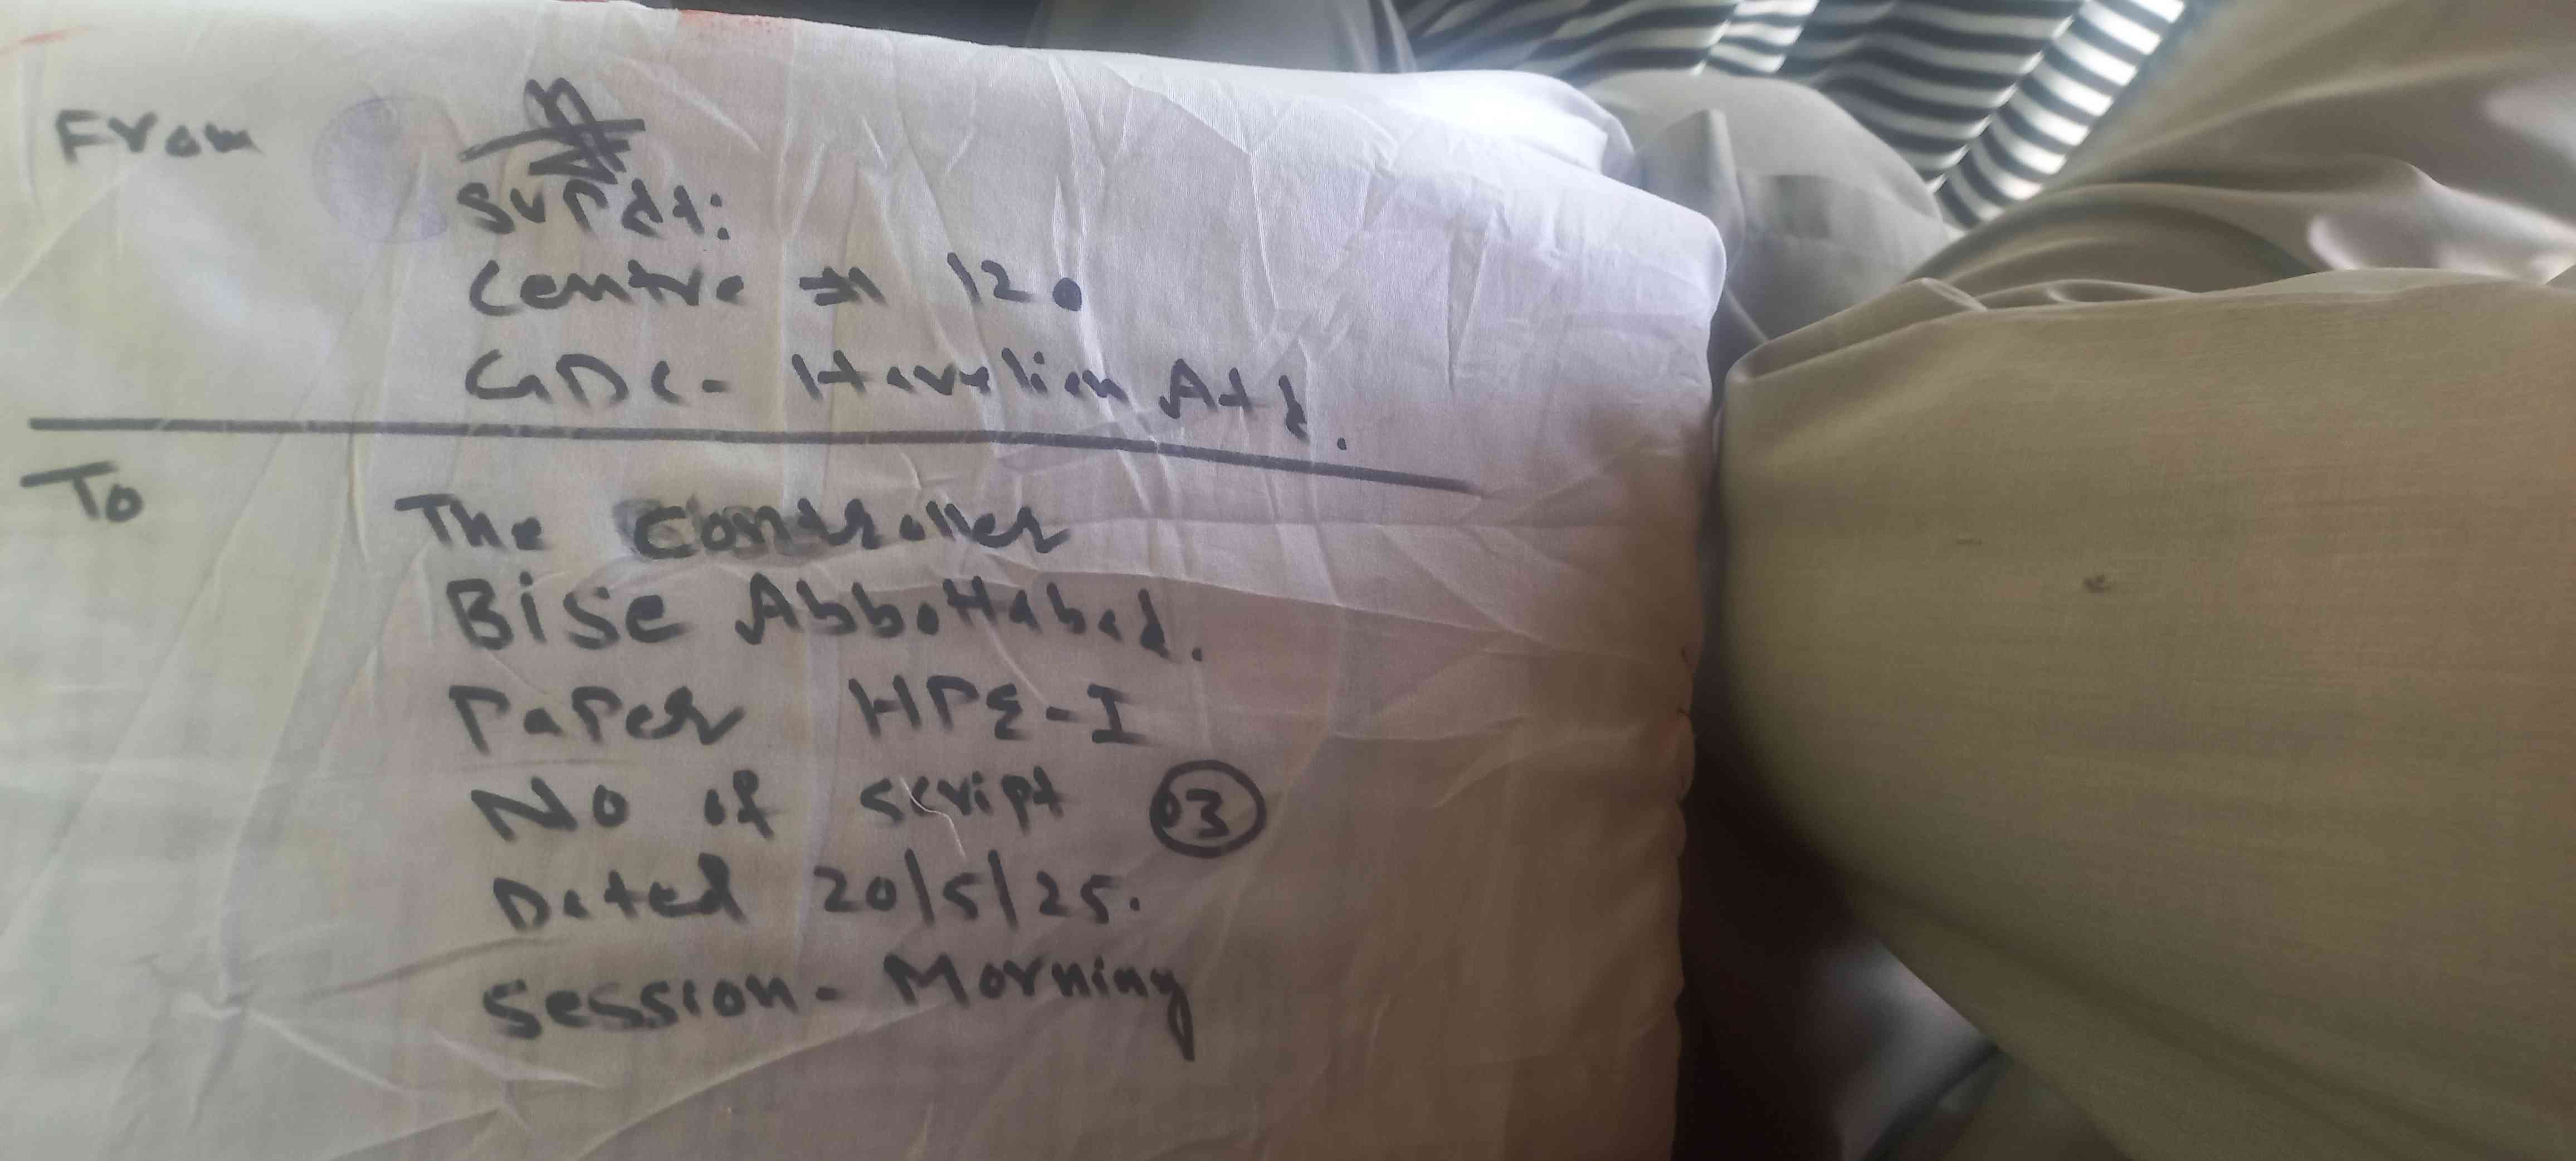 From
Supdt:
Centre # 120
GDC- Havelian Atd.
To
The Controller
Bise Abbottabad.
Paper HPE-I
No of script 03
Dated 20/5/25.
Session - Morning